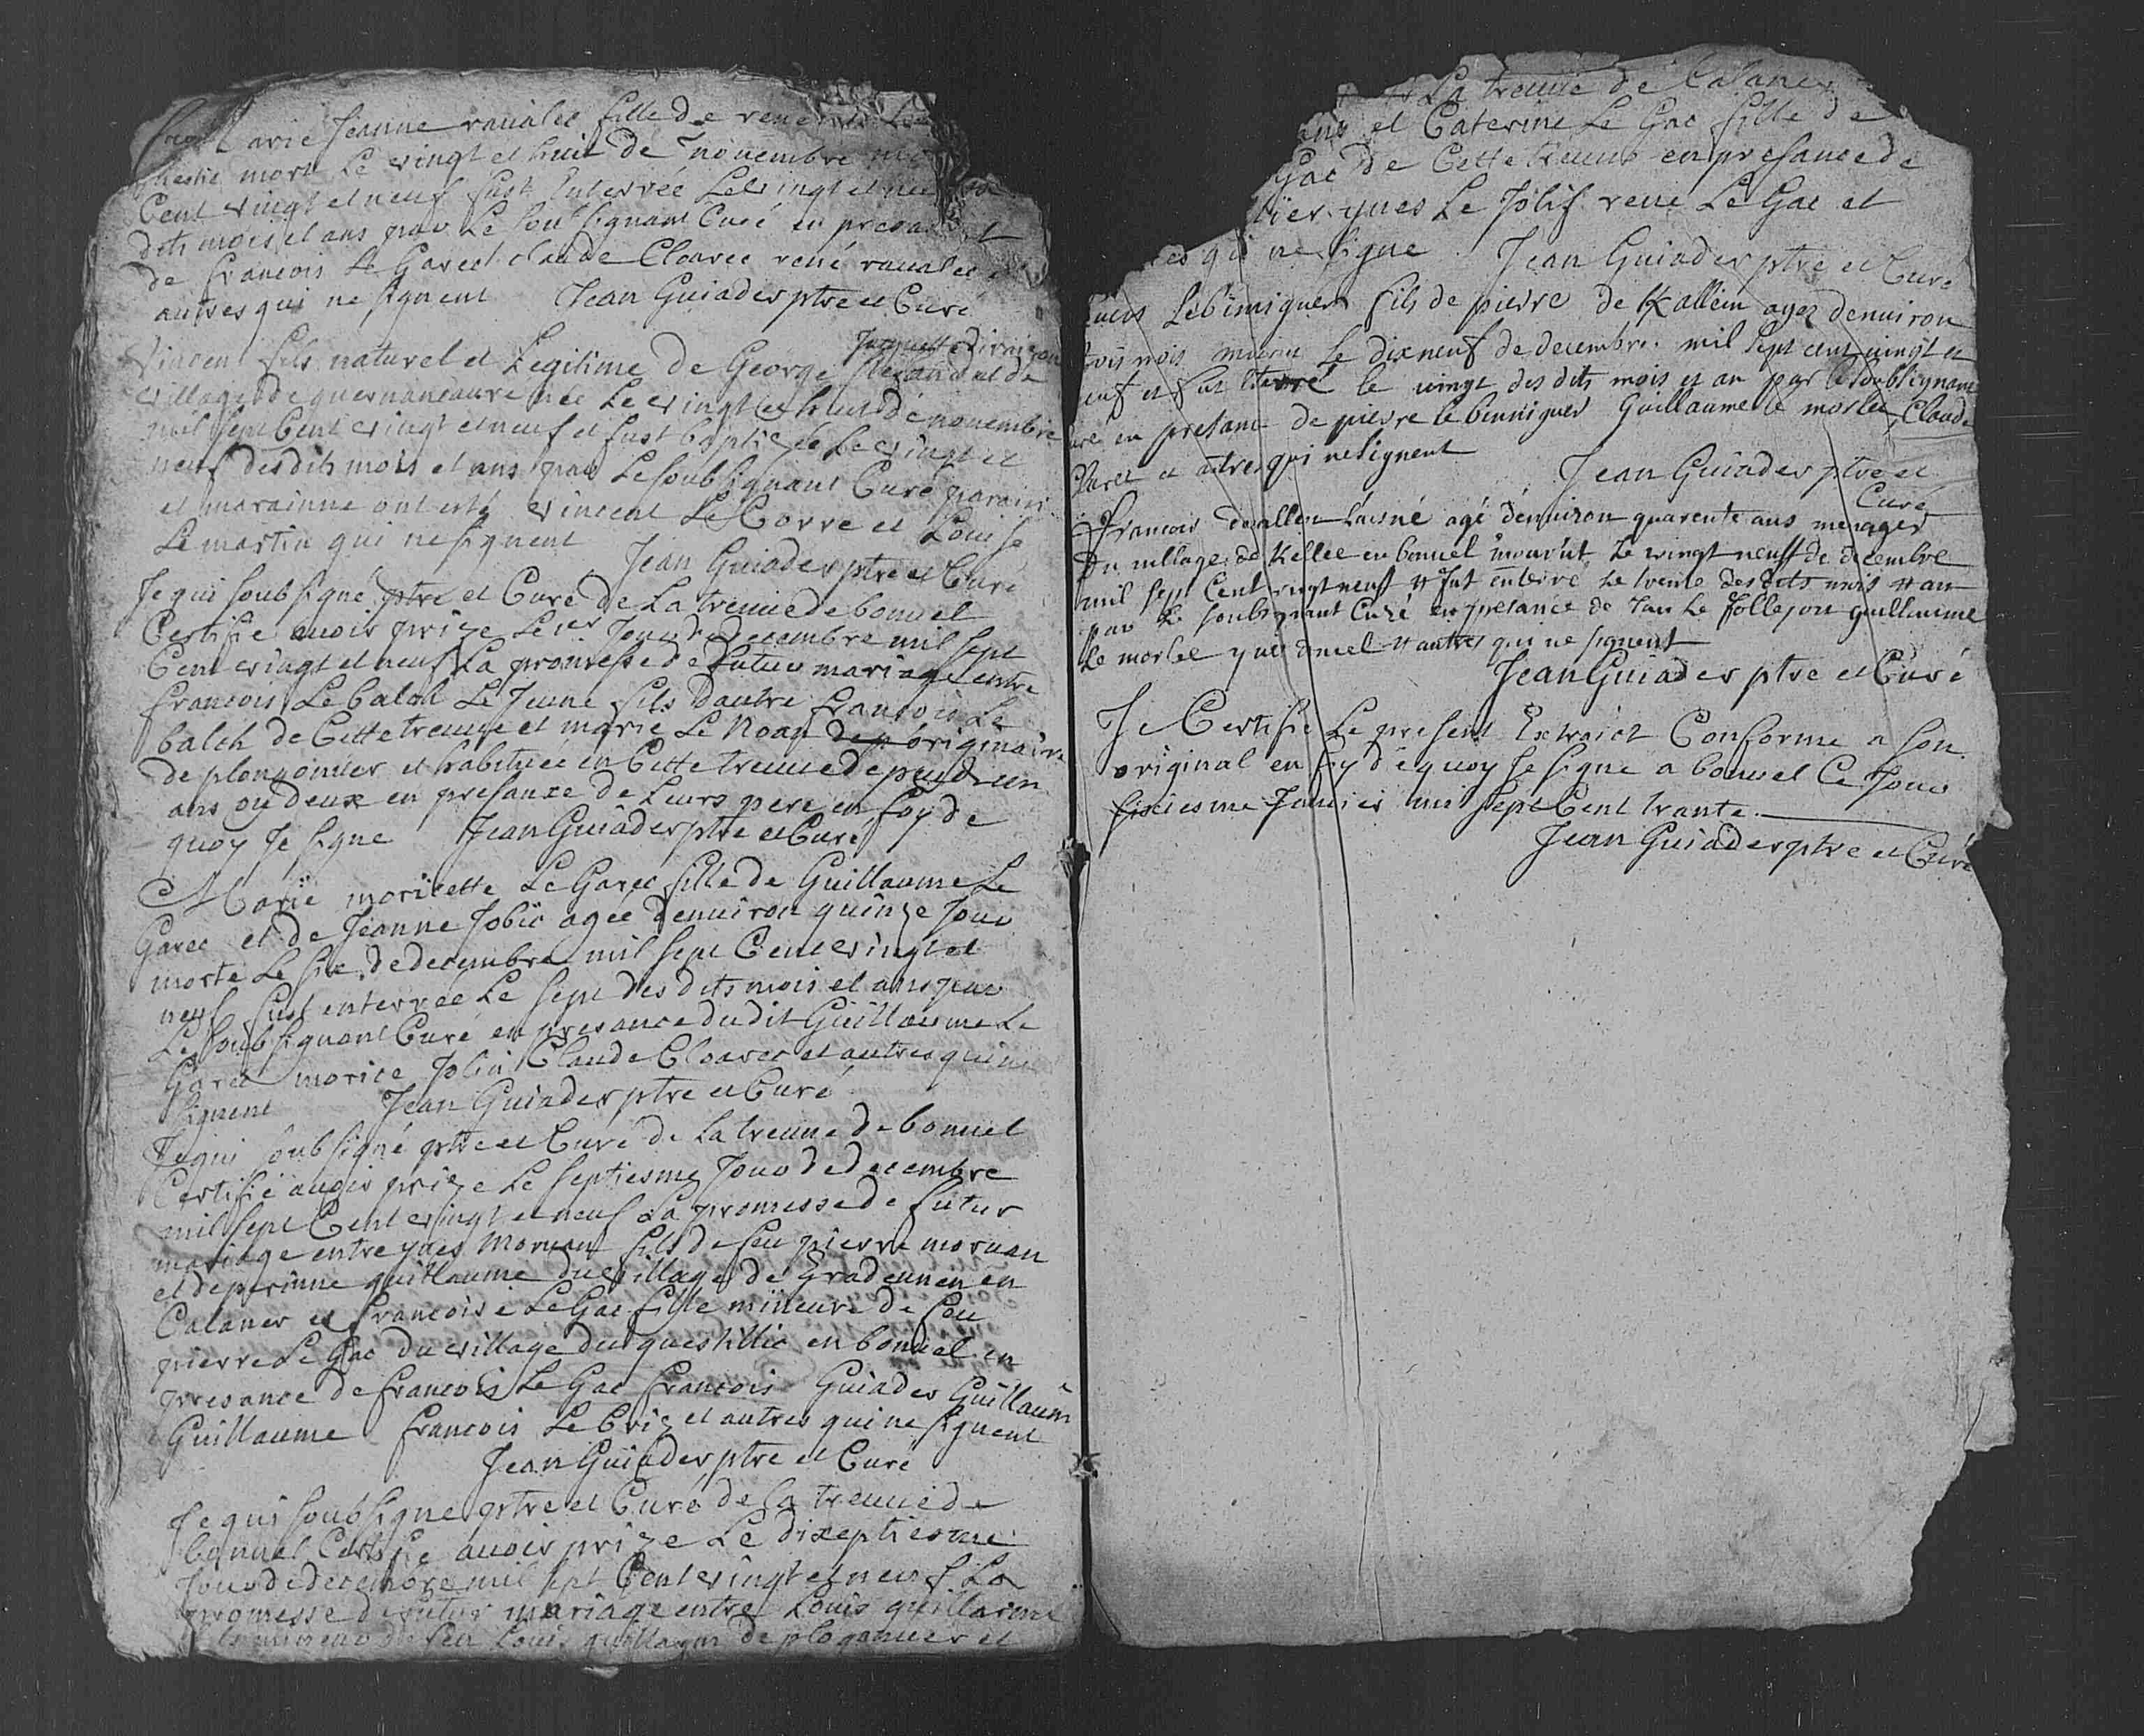 Marie Jeanne raualec fille de rene
mort Le vingt et huit de novembre
Cent vingt et neuf fust Enterrée Le vingt et neuf
dits mois et ans par Le soubsignant Curé en presance
de francois Le Garec claude Cloarec rené raualec
autres qui ne signent Jean Guiader ptre et Curé
Vincent fils naturel et Legitime de George
village de quernancaure née Le vingt et huit de novembre
mil sept Cent vingt et neuf et fust baptizé Le vingt et
neuf desdits mois et ans par Le soubsignant Curé parain
et marainne ont esté vincent Le Corre et Louise
Le martin qui ne signent Jean Guiader ptre et Curé
Je qui soubsigné ptre et Curé de La treuue de bonuel
Certifie auoir prize Le 1er Jour de decembre mil sept
Cent vingt et neuf La promesse de futur mariage entre
francois Le balch Le Jeune fils dautre francois Le
balch de Cette treuue et marie Le Noan originaire
de plougonuer et habituée en Cette treuue depuis un
ans ou deux en presanxe de Leurs pere en foy de
quoy Je signe Jean Guiader ptre et Curé
Marie moricette Le Garec fille de Guillaume Le
Garec et de Jeanne Jobic agée denuiron quinze Jour
morte Le six de decembre mil sept Cent vingt et
neuf fust enterrée Le sept des dits mois et ans par
Le soubsignant Curé en presance du dit Guillaume Le
Garec morice Claude Cloarec et autres qui ne
signent Jean Guiader ptre et Curé
Je qui soubsigné ptre et Curé de La treuue de bonuel
Certifie auoir prize Le septiesme Jour de decembre
mil sept Cent vingt et neuf La promesse de futur
mariage entre yues Moruan fils de feu pierre moruan
et de perinne guillaume du village de Gradennen en
Calaner et francoise Le Gac fille mineure de feu
pierre Le Gac du village du questillic en bonuel en
presance de francois Le Gac francois Guiader Guillaume
Guillaume francois Le briz et autres qui ne signent
Jean Guiader ptre et Curé
Je qui soubsigne ptre et Curé de La treuue de
bonuel Certifie auoir prize Le dixseptiesme
Jour de decembre mil sept Cent vingt et neuf La
promesse de futur mariage entre Louis guillaume
fils mineur de feu Louis guillaum de plogonuer et
La treuue de Calaner
ans et Caterine Le Gac fille de
Gac de Cette treuue en presance de
yues Le Jolif rene Le Gac et
qui ne signe Jean Guiader ptre et Curé
Lebiniguer fils de pierre de Kallein agez denuiron
trois mois mouru le dixneuf de decembre mil sept cent vingt et
neuf et fut Iterré le vingt des dits mois et an par le soubsignant
curé en presanc de pierre le binniguer Guillaume le morlec, Claude
Cloarec et autres qui ne signent
Jean Guiader ptre et
Curé
francois L'aisné agé d'enuiron quarente ans menager
du uillage de Kellec en bonuel mourut le vingt neuff de decembre
mil sept Cent vingt neuf & fut enterré le trente des dits mois & an
par le soubsignant Curé en presance de Jan Le follezou guilleaume
le morlec yues & autres qui ne signent
Jean Guiader ptre et Curé
Je Certifie Le present Extraict Conforme a son
original en foy de quoy Je signe a bonuel Ce Jour
sixiesme Januier mil sept Cent trante.
Jean Guiader ptre et Curé